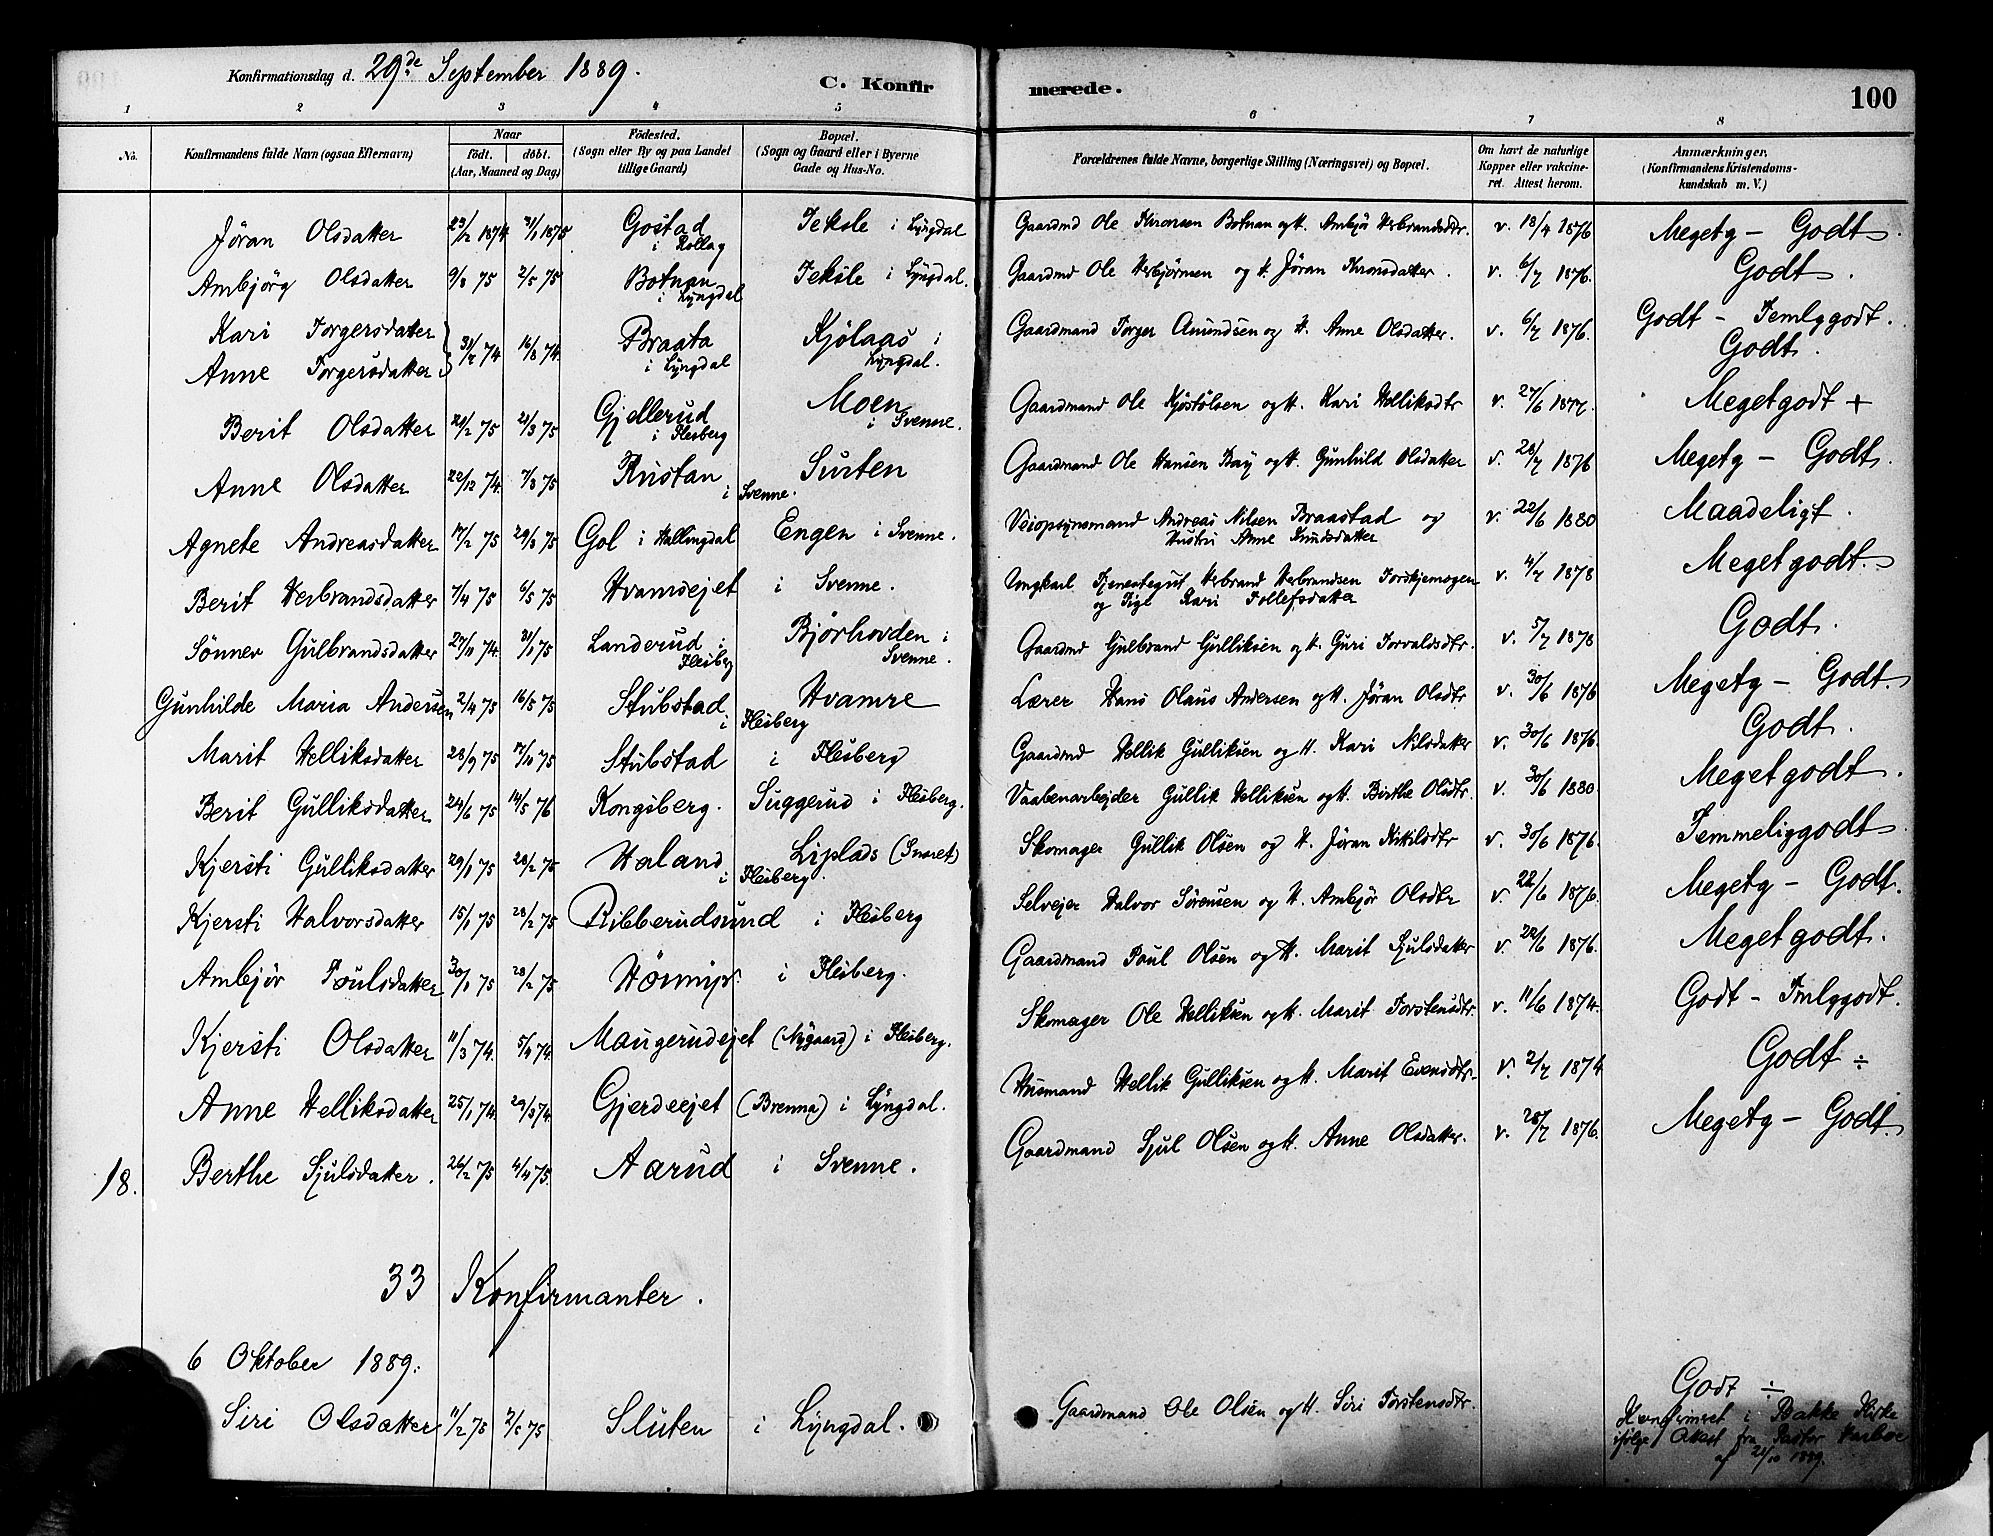 Konfirmationsdag d. 29de September 1889.
C. Konfirmerede.
100
1 2 3 4 5 6 7 8
No. Konfirmandens fulde Navn (ogsaa Efternavn) Naar födt. döbt. (Aar, Maaned og Dag) Födested. (Sogn eller By og paa Landet tillige Gaard) Bopæl. (Sogn og Gaard eller i Byerne Gade og Hus-No. Forældrenes fulde Navne, borgerlige Stilling (Næringsvei) og Bopæl. Om havt de naturlige Kopper eller vakcineret. Attest herom. Anmærkninger. (Konfirmandens Kristendomskundskab m. V.)
Jöran Olsdatter 23/12 1874 31/1 1875 Gostad i Rollag Teksle i Lyngdal Gaardmd Ole Knonsen Botnan og H. Ambjö Herbrandsdtr. v. 18/4 1876 Megetg - Godt
Ambjörg Olsdatter 9/3 75 2/5 75 Botnan i Lyngdal Teksle i Lyngdal. Gaardmd Ole Herbjörnsen og H. Jöran Knonsdatter. v. 6/7 1876. Godt.
Kari Torgersdatter 31/7 74 16/8 74. Braata i Lyngdal Kjölaas i Lyngdal. Gaardmand Torger Amundsen og H. Anne Olsdatter. v. 6/7 1876. Godt - Temlggodt.
Anne Torgersdatter Godt.
Berit Olsdatter 21/2 75 21/3 75 Gjellerud i Flesberg Moen i Svenne. Gaardmand Ole Kjöstölsen og H. Kari Helliksdtr v. 27/6 1877. Megetgodt +
Anne Olsdatter 22/12 74. 7/3 75 Ristan i Svenne. Surten Gaardmand Ole Hansen Bay og H. Gunhild Olsdatter v. 28/7 1876 Megetg - Godt.
Agnete Andreasdatter 17/2 75 29/6 75 Gol i Hallingdal Engen i Svenne. Veiopsynsmand Andreas Nilsen Braastad og Hustru Anne Knudsdatter v. 22/6 1880 Maadeligt.
Berit Herbrandsdatter 7/4 75 6/5 75 Hvamsejet i Svenne. Ungkarl Tjenestegut Herbrand Herbrandsen og Pige Kari Tollefsdatter v. 4/7 1878 Megetgodt.
Sönnev Gulbrandsdatter 27/11 74. 31/1 75 Landerud i Flesberg Bjorhovden i Svenne. Gaardmd Gulbrand Gulliksen og H. Guri Torvaldsdtr. v. 5/7 1878 Godt.
Gunhilde Maria Andersen 2/4 75 16/5 75 Stubstad i Flesberg Hvamre Lærer Hans Olaus Andersen og H. Jöran Olsdtr v. 30/6 1876 Megetg - Godt.
Marit Helliksdatter 28/9 75 17/10 75 Stubstad i Flesberg Gaardmd Hellik Gulliksen og H. Kari Nilsdatter v. 30/6 1876. Godt.
Berit Gulliksdatter 24/6 75 14/5 76 Kongsberg. Suggerud i Flesberg. Vaabenarbejder Gullik Helliksen og H. Birthe Olsdtr. v. 30/6 1880. Megetgodt.
Kjersti Gulliksdatter 29/1 75 28/2 75 Haland i Flesberg. Liplads (Snaret) Skomager Gullik Olsen og H. Jöran Kikilsdtr v. 30/6 1876. Temmeliggodt
Kjersti Halvorsdatter 15/1 75 28/2 75 Ribberudsund i Flesberg Selvejer Halvor Sörensen og H. Ambjör Olsdtr v. 22/6 1876. Megetg - Godt.
Ambjör Poulsdatter 30/1 75 28/2 75 Hörmyr. i Flesberg. Gaardmand Paul Olsen og H. Marit Sjulsdatter v. 22/6 1876. Megetgodt.
Kjersti Olsdatter 11/3 74. 5/4 74. Maugerudejet (Nygaard) i Flesberg. Skomager Ole Helliksen og H. Marit Torstensdtr. v. 11/6 1874. Godt - Tmlggodt.
Anne Helliksdatter 25/1 74. 29/3 74. Gjerdeejet (Brenna) i Lyngdal. Husmand Hellik Gulliksen og H. Marit Evensdtr. v. 2/7 1874 Godt ÷
18. Berthe Sjulsdatter. 26/2 75 4/4 75. Aarud i Svenne. Gaardmand Sjul Olsen og H. Anne Olsdatter. v. 28/7 1876. Megetg - Godt.
33 Konfirmanter.
6 Oktober 1889.
Siri Olsdatter 11/2 75 2/5 75 Sluten i Lyngdal. Gaardmand Ole Olsen og H. Siri Torstensdtr. Godt ÷
Konfirmeret i Bakke Kirke
ifölge Attest fra Pastor
af 21/10 1889.